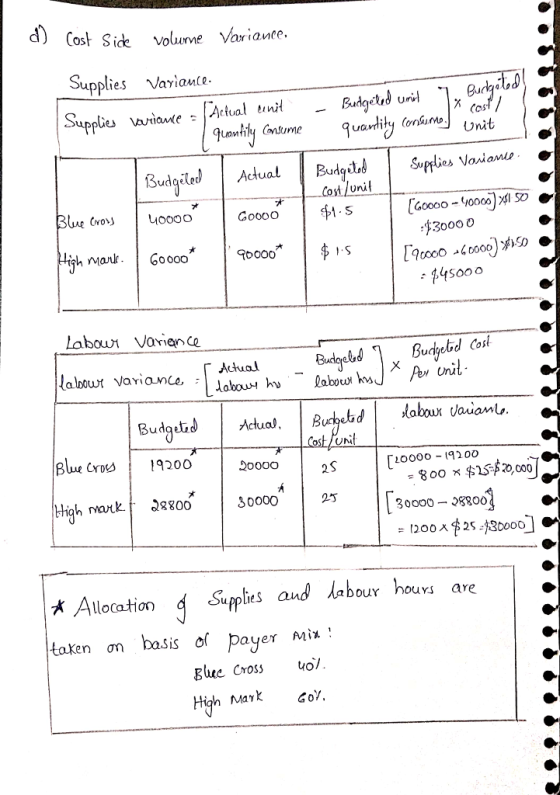 d) Cost Side Volume Variance.
Supplies Variance.
Supplies variance = [Actual unit quantity consume - Budgeted unit quantity consume.] x Budgeted cost / Unit
Budgeted Actual Budgeted Cost/unit Supplies Variance.
Blue Cross 40000* 60000* $1.5 [60000 - 40000] x $1.50
= $30000
High mark. 60000* 90000* $1.5 [90000 - 60000] x $1.50
= $45000
Labour Variance
labour variance = [Actual labour hs - Budgeted labour hs] x Budgeted Cost Per Unit.
Budgeted Actual. Budgeted Cost/unit labour Variance.
Blue Cross 19200* 20000* 25 [20000 - 19200
= 800 x $25 = $20,000]
High mark 28800* 30000* 25 [30000 - 28800]
= 1200 x $25 = $30000]
* Allocation of Supplies and labour hours are
taken on basis of payer Mix :
Blue Cross 40%.
High Mark 60%.